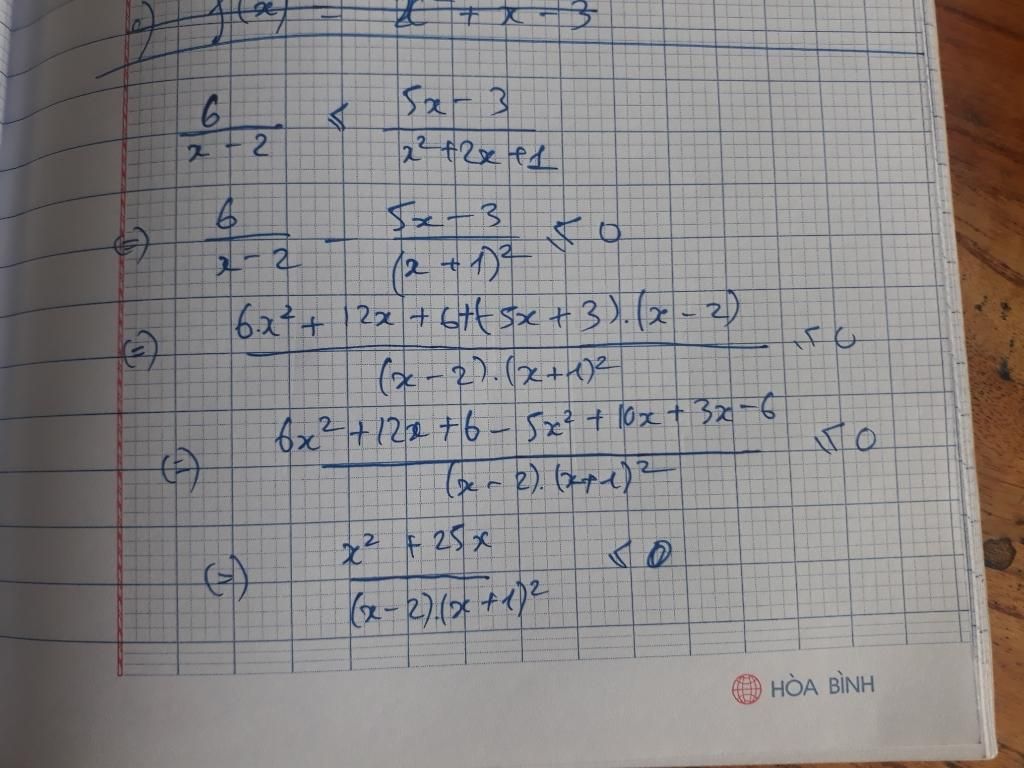 a) f(x) = x² + x - 3
6/(x - 2) ≤ (5x - 3)/(x² + 2x + 1)
(=) 6/(x - 2) - (5x - 3)/(x + 1)² ≤ 0
(=) (6x² + 12x + 6 + (-5x + 3).(x - 2))/((x - 2).(x + 1)²) ≤ 0
(=) (6x² + 12x + 6 - 5x² + 10x + 3x - 6)/((x - 2).(x + 1)²) ≤ 0
(=) (x² + 25x)/((x - 2).(x + 1)²) ≤ 0
HÒA BÌNH